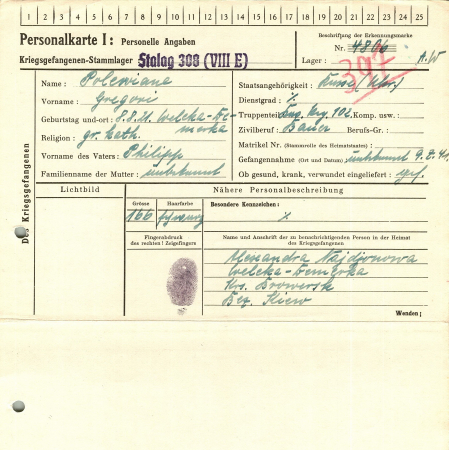 1 2 3 4 5 6 7 8 9 10 11 12 13 14 15 16 17 18 19 20 21 22 23 24 25
Personalkarte I: Personelle Angaben
Kriegsgefangenen-Stammlager Stalag 308 (VIII E)
Beschriftung der Erkennungsmarke
Nr. 4806
Lager:
397
A.W
Des Kriegsgefangenen
Name:
Vorname: Gregori
Geburtstag und-ort: 8.8.21. Welcka-De-
merka
Religion: gr. kath.
Vorname des Vaters: Philipp
Familienname der Mutter: unbekannt
Staatsangehörigkeit:
Dienstgrad:
Truppenteil: 102 Komp. usw.:
Zivilberuf: Bauer Berufs-Gr.:
Matrikel Nr. (Stammrolle des Heimatstaates):
Gefangennahme (Ort und Datum): unbekannt 9.8.41
Ob gesund, krank, verwundet eingeliefert: gef.
Lichtbild
Nähere Personalbeschreibung
Grösse
166
Haarfarbe
schwarz
Besondere Kennzeichen:
x
Fingerabdruck
des rechten! Zeigefingers
Name und Anschrift der zu benachrichtigenden Person in der Heimat
des Kriegsgefangenen
Alexandra Najdjonowa
Welcka-Demerka
Krs. Browersk
Bez. Kiew
Wenden;